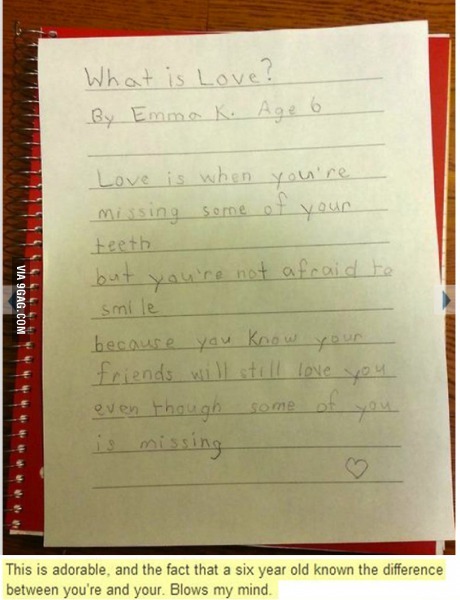 What is Love?
By Emma K. Age 6
Love is when you're
missing some of your
teeth
but you're not afraid to
smile
because you know your
friends will still love you
even though some of you
is missing
VIA 9GAG.COM
This is adorable, and the fact that a six year old known the difference
between you're and your. Blows my mind.